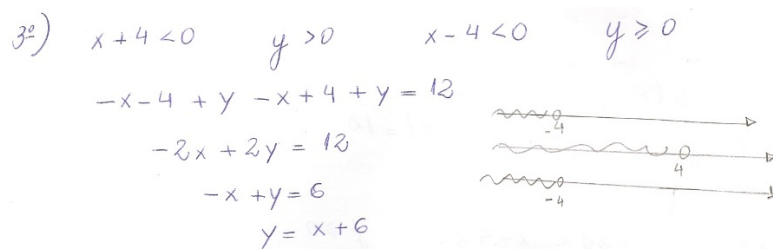 3º) x + 4 < 0 y > 0 x - 4 < 0 y ≥ 0
-x - 4 + y - x + 4 + y = 12
-4
-2x + 2y = 12
4
-x + y = 6
-4
y = x + 6